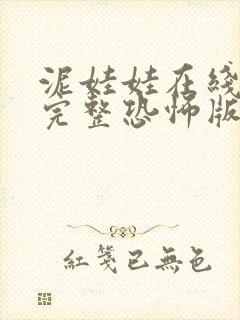 泥娃娃在线
完整恐怖版
紅箋已無色